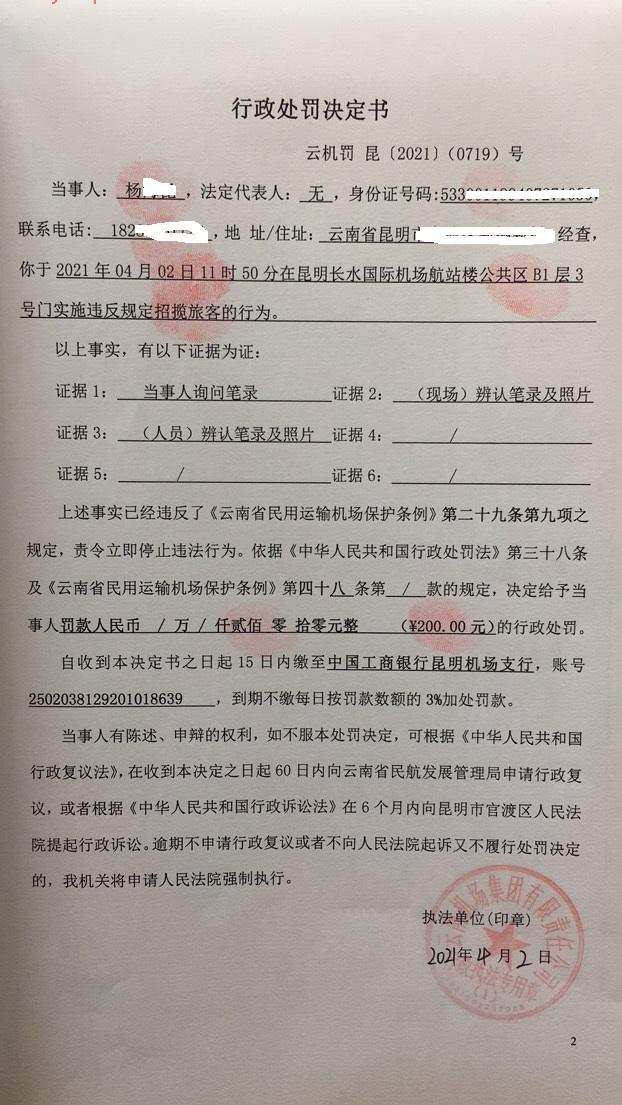 行政处罚决定书
云机罚 昆〔2021〕（0719）号
当事人：杨，法定代表人：无，身份证号码:533
联系电话：182，地 址/住址：云南省昆明 经查，
你于 2021 年 04 月 02 日 11 时 50 分在昆明长水国际机场航站楼公共区 B1 层 3
号门实施违反规定招揽旅客的行为。
以上事实，有以下证据为证：
证据 1： 当事人询问笔录 证据 2： （现场）辨认笔录及照片
证据 3： （人员）辨认笔录及照片 证据 4： /
证据 5： / 证据 6： /
上述事实已经违反了《云南省民用运输机场保护条例》第二十九条第九项之
规定，责令立即停止违法行为。依据《中华人民共和国行政处罚法》第三十八条
及《云南省民用运输机场保护条例》第四十八 条第 / 款的规定，决定给予当
事人罚款人民币 / 万 / 仟贰佰 零 拾零元整 （¥200.00 元）的行政处罚。
自收到本决定书之日起 15 日内缴至中国工商银行昆明机场支行，账号
2502038129201018639 ，到期不缴每日按罚款数额的 3%加处罚款。
当事人有陈述、申辩的权利，如不服本处罚决定，可根据《中华人民共和国
行政复议法》，在收到本决定之日起 60 日内向云南省民航发展管理局申请行政复
议，或者根据《中华人民共和国行政诉讼法》在 6 个月内向昆明市官渡区人民法
院提起行政诉讼。逾期不申请行政复议或者不向人民法院起诉又不履行处罚决定
的，我机关将申请人民法院强制执行。
执法单位(印章)
2021年 4 月 2 日
云南机场集团有限责任公司
执法专用章
(1)
2